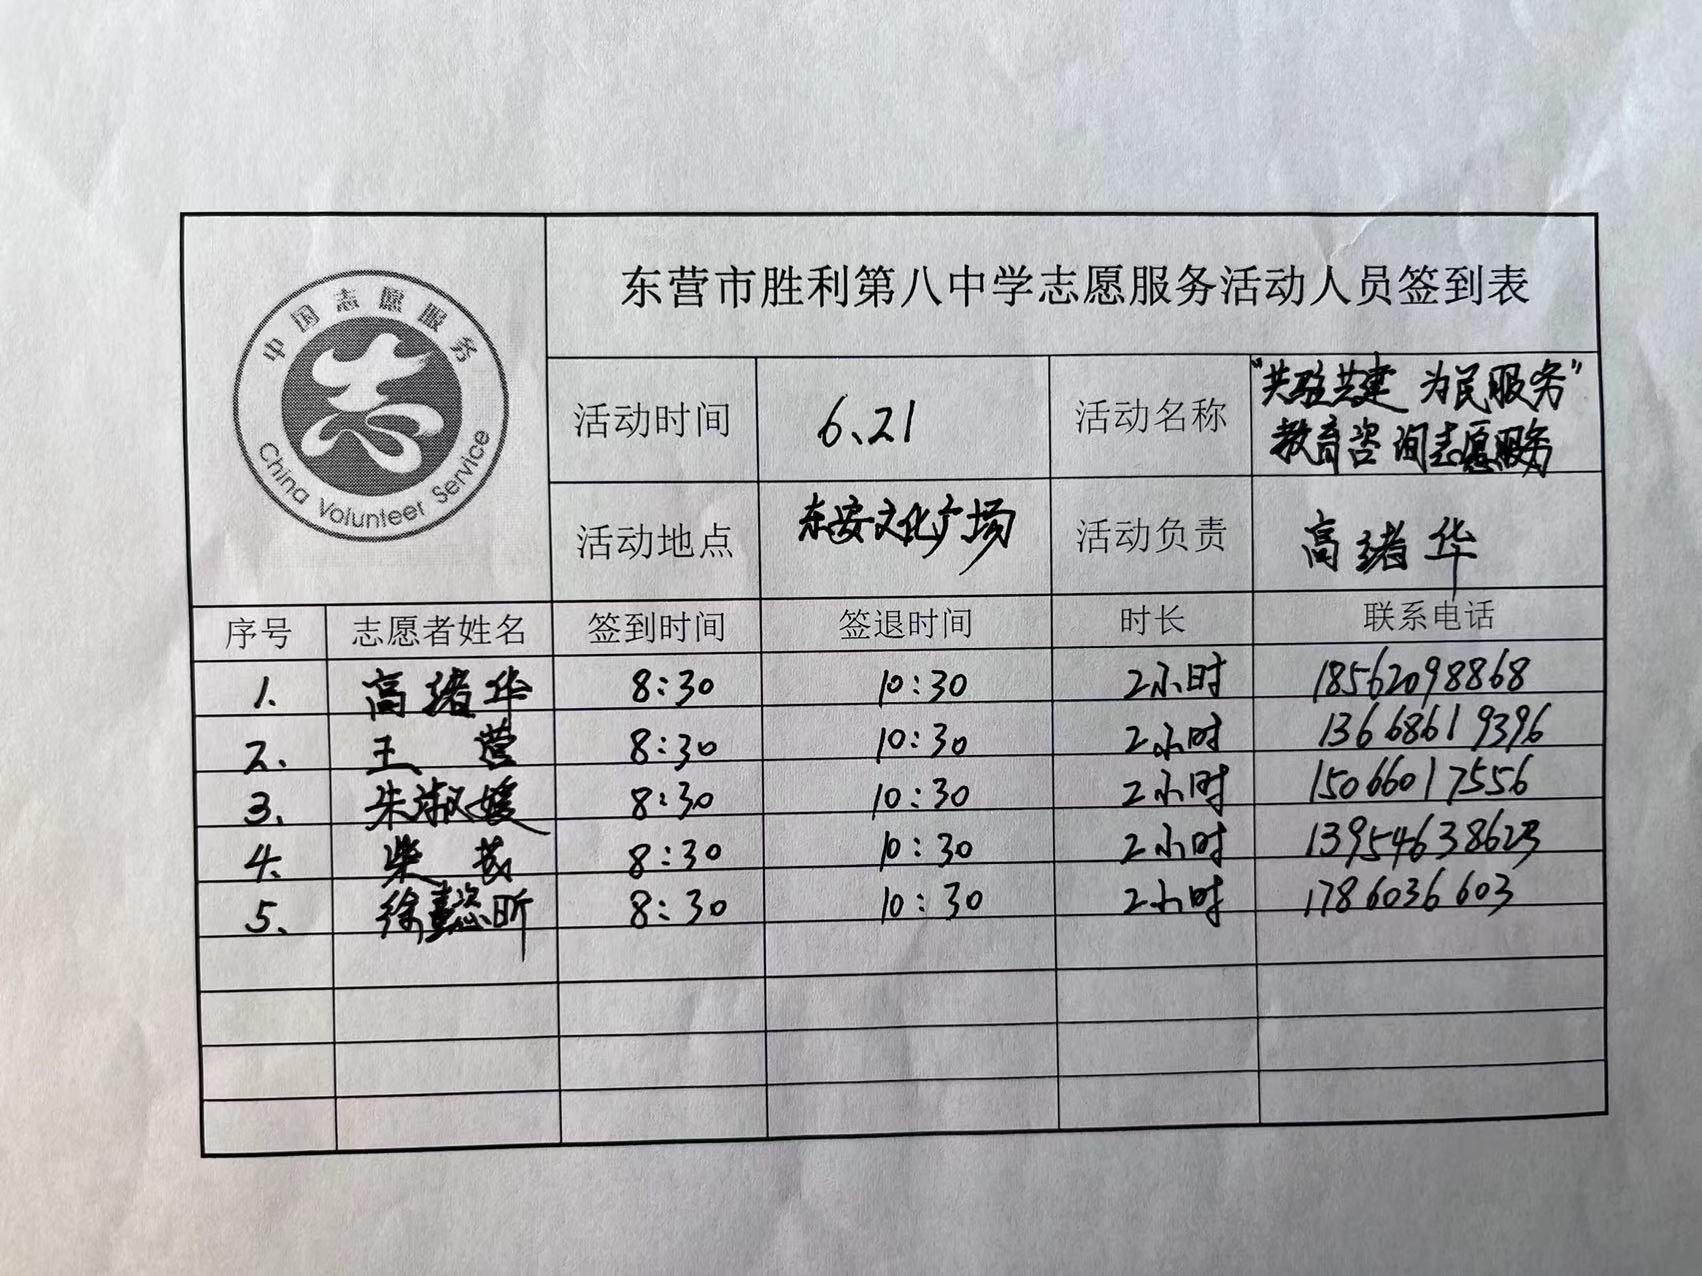 中国志愿服务
China Volunteer Service
东营市胜利第八中学志愿服务活动人员签到表
活动时间 6、21 活动名称 "共驻共建 为民服务"
教育咨询志愿服务
活动地点 东安文化广场 活动负责 高绪华
序号 志愿者姓名 签到时间 签退时间 时长 联系电话
1、 高绪华 8:30 10:30 2小时 18562098868
2、 王营 8:30 10:30 2小时 13668619396
3、 朱淑媛 8:30 10:30 2小时 15066017556
4、 柴 8:30 10:30 2小时 13954638623
5、 徐懿昕 8:30 10:30 2小时 1786036603